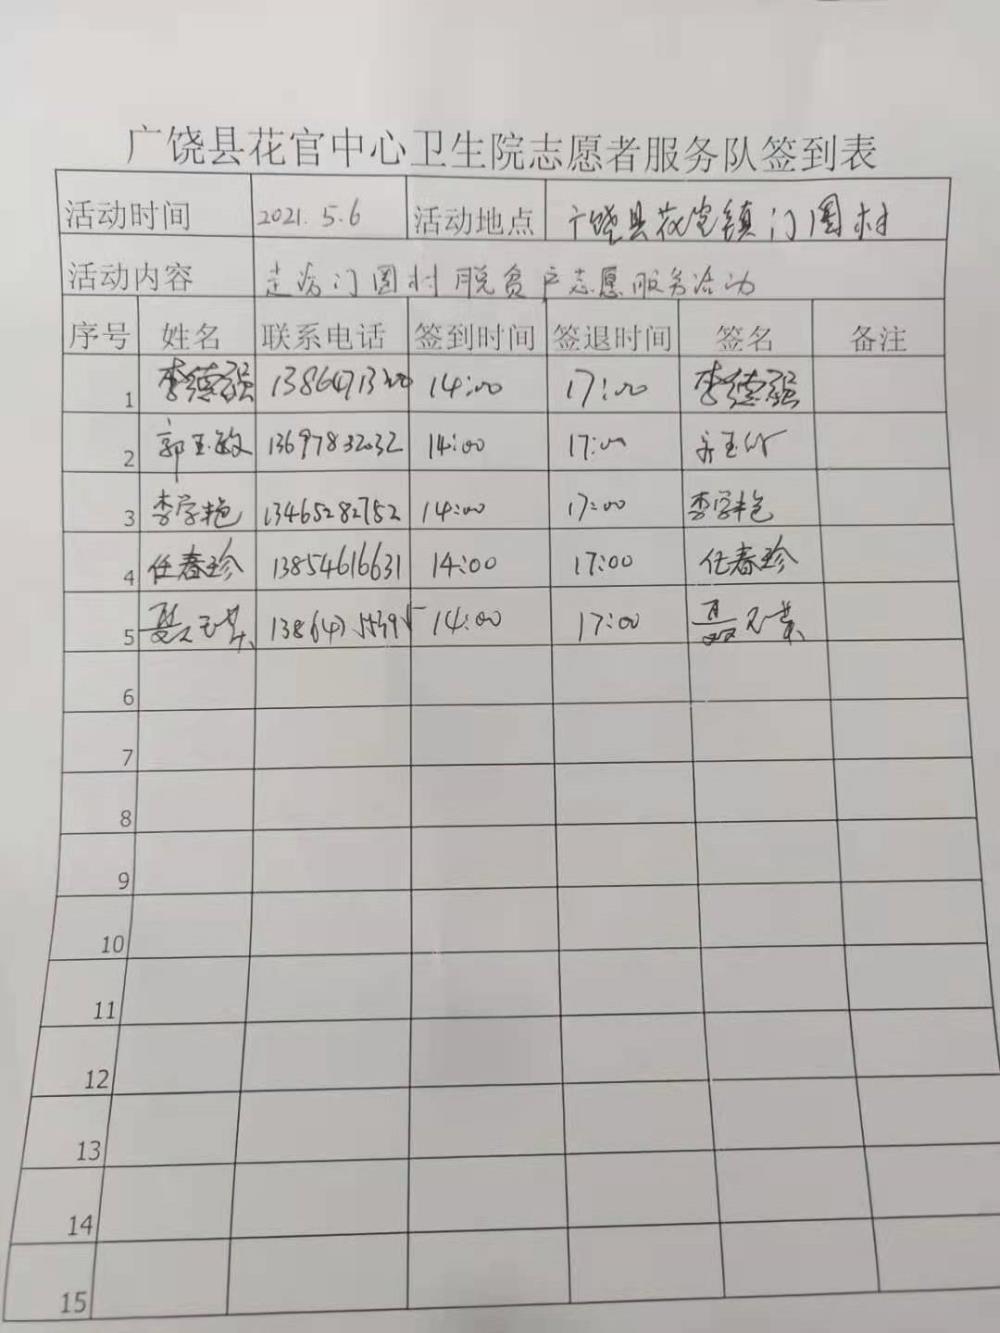 广饶县花官中心卫生院志愿者服务队签到表
活动时间 2021.5.6 活动地点 广饶县花官镇门圈村
活动内容 走访门圈村脱贫户志愿服务活动
序号 姓名 联系电话 签到时间 签退时间 签名 备注
1 李德强 14:00 17:00 李德强
2 郭玉敏 13697832032 14:00 17:00
3 李学艳 13465282752 14:00 17:00 李学艳
4 任春珍 13854616631 14:00 17:00 任春珍
5 14:00 17:00
6
7
8
9
10
11
12
13
14
15